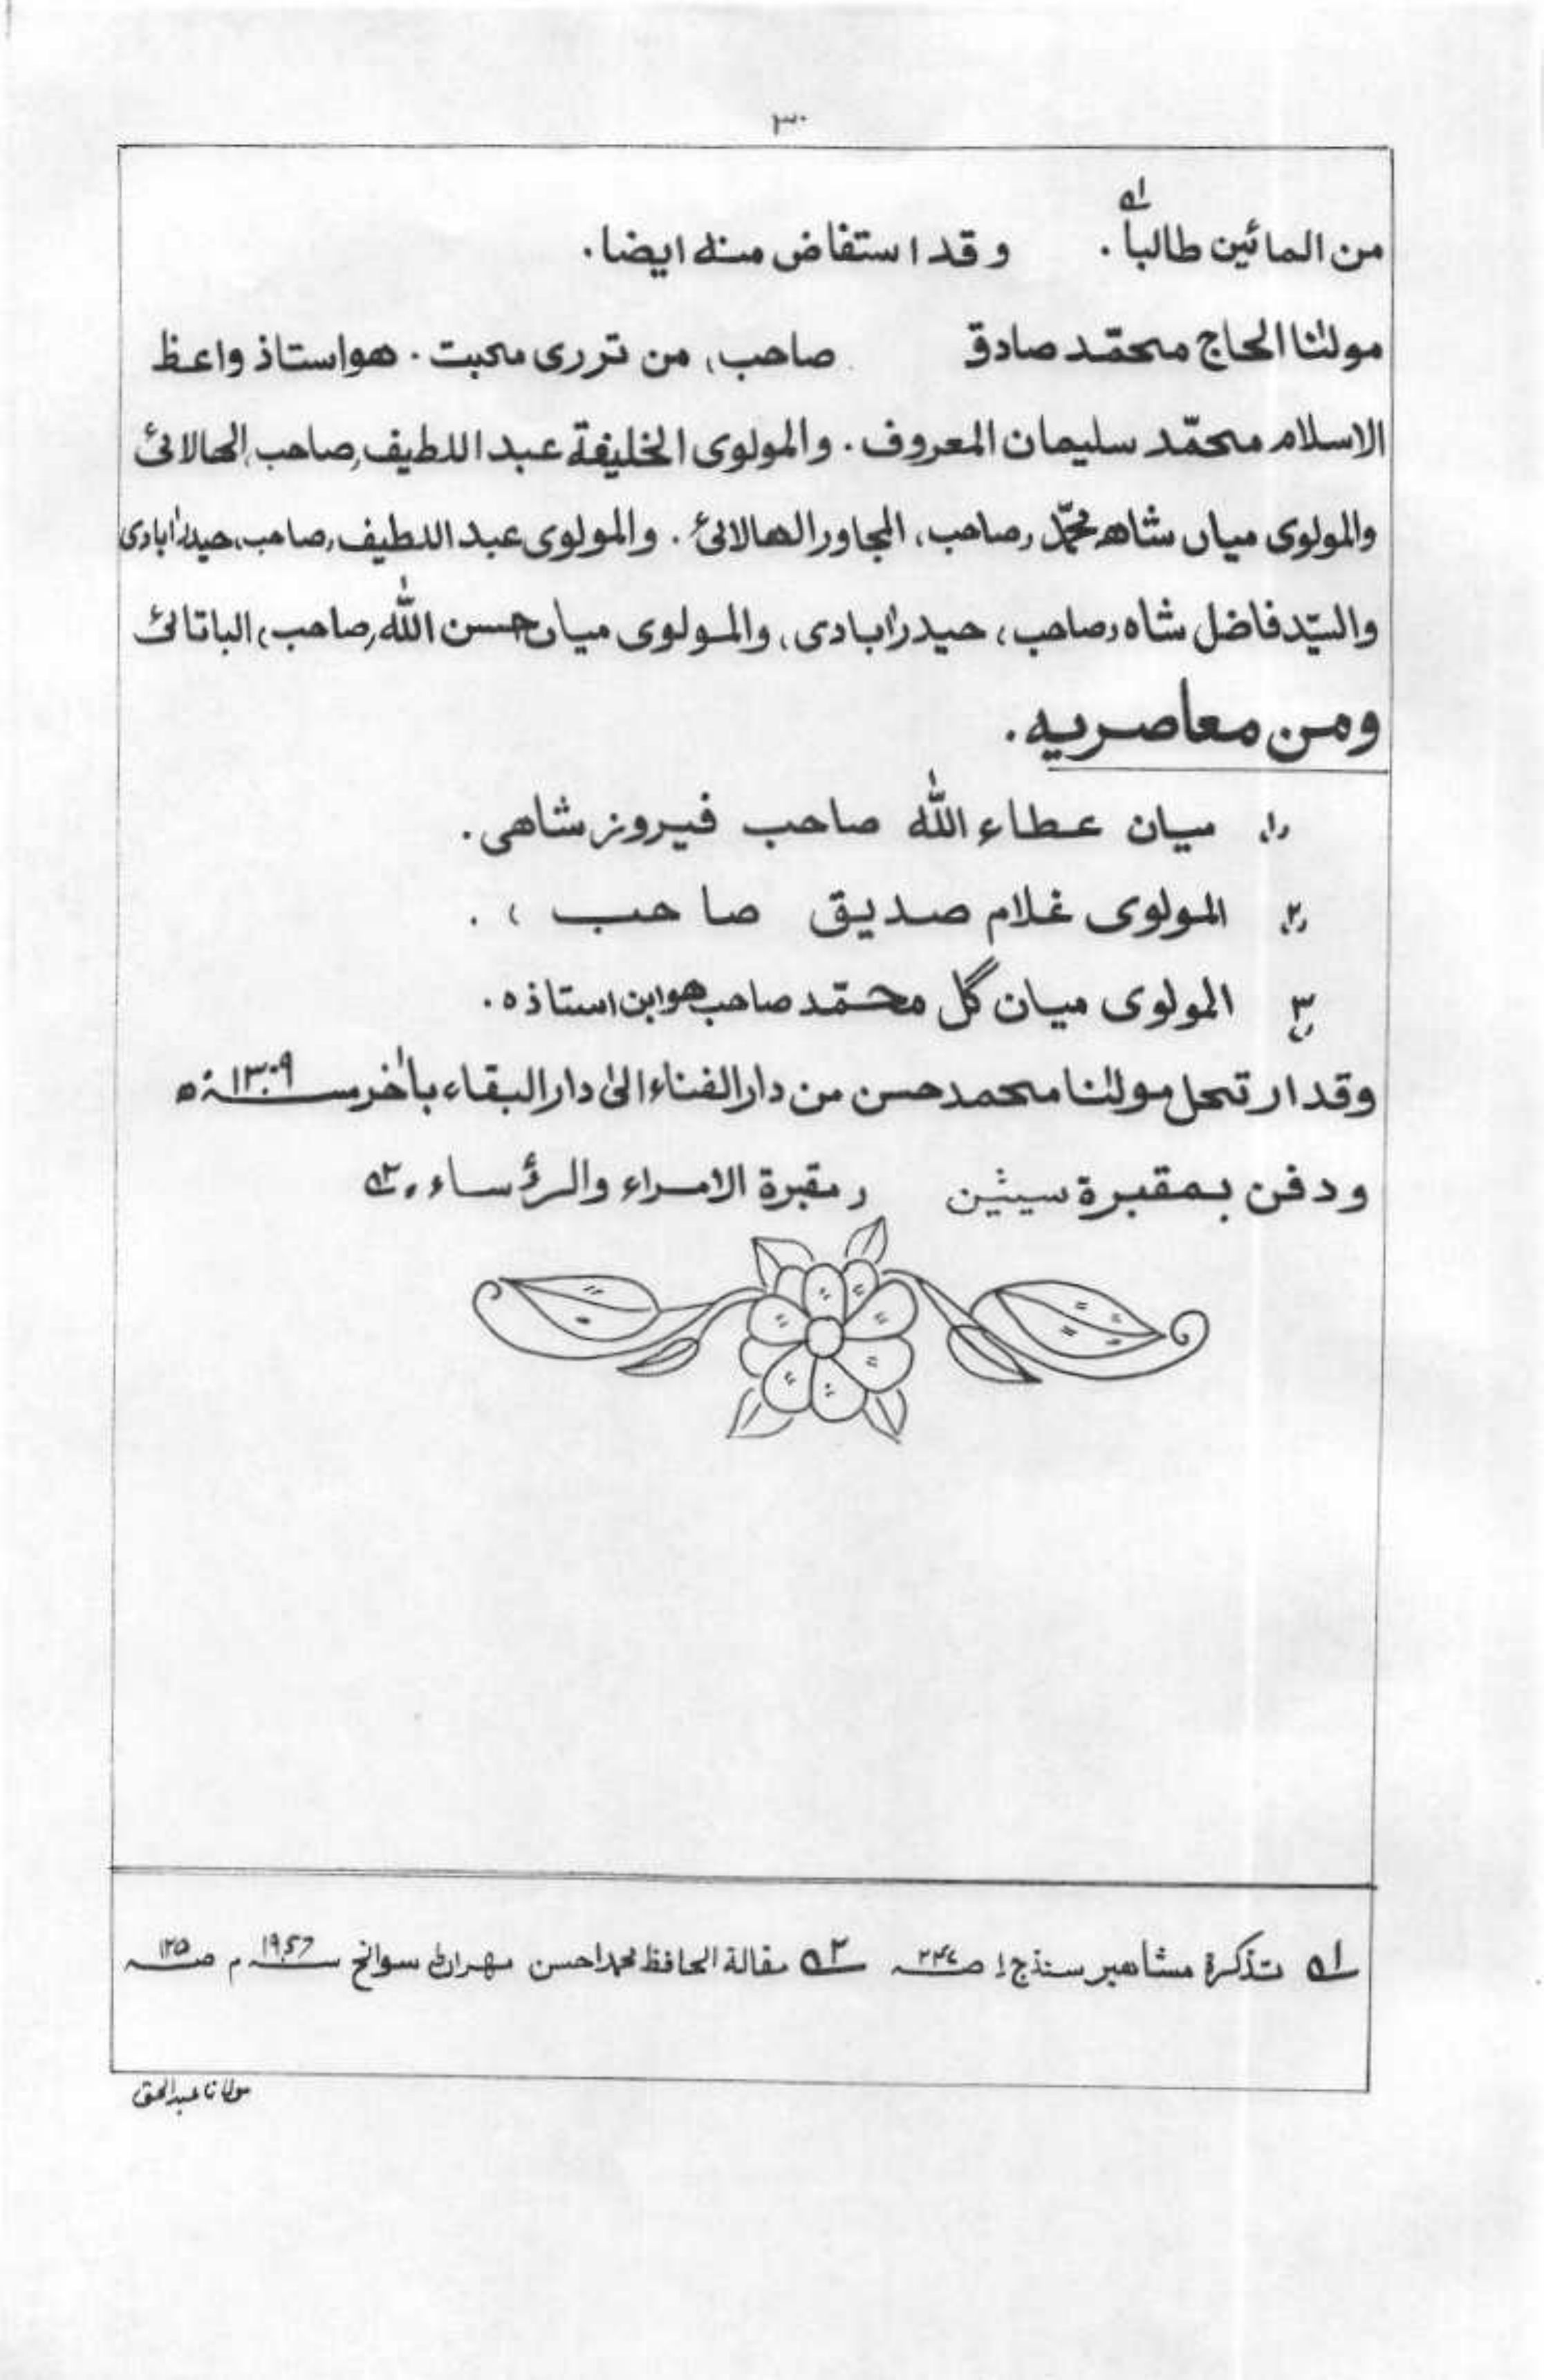 ٣٠
من المائين طالبا ؎١ . وقد استفاض منه ايضا.
مولٰنا الحاج محمّد صادق صاحب، من تررى محبت. هو استاذ واعظ
الاسلام محمّد سليمان المعروف. والمولوى الخليفة عبد اللطيف, صاحب, الهالائ
والمولوى ميان شاه محمّد, صاحب، المجاور الهالائ. والمولوى عبد اللطيف, صاحب، حيدرابادى
والسيّد فاضل شاه, صاحب، حيدرابادى، والمولوى ميان حسن اللّٰه, صاحب، الباتائ
ومن معاصريه.
(١) ميان عطاء اللّٰه صاحب فيروز شاهى.
(٢) المولوى غلام صديق صاحب ، .
(٣) المولوى ميان گل محمّد صاحب هو ابن استاذه.
وقد ارتحل مولٰنا محمد حسن من دار الفناء الىٰ دار البقاء باٰخر سنة ١٣٠٩ه
ودفن بمقبرة سيٺين (مقبرة الامراء والرؤساء). ؎٢
؎١ تذكرة مشاهير سنڌ ج ١ ص ٢٣٤ ؎٢ مقالة الحافظ محمد احسن مهران سوانح ١٩٥٦ م ص ١٢٥
مولانا عبدالحق